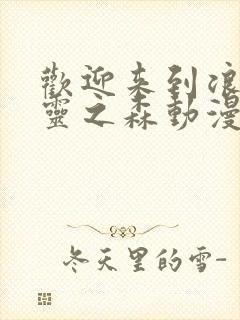 歡迎来到浪
靈之森動漫
冬天里的雪-